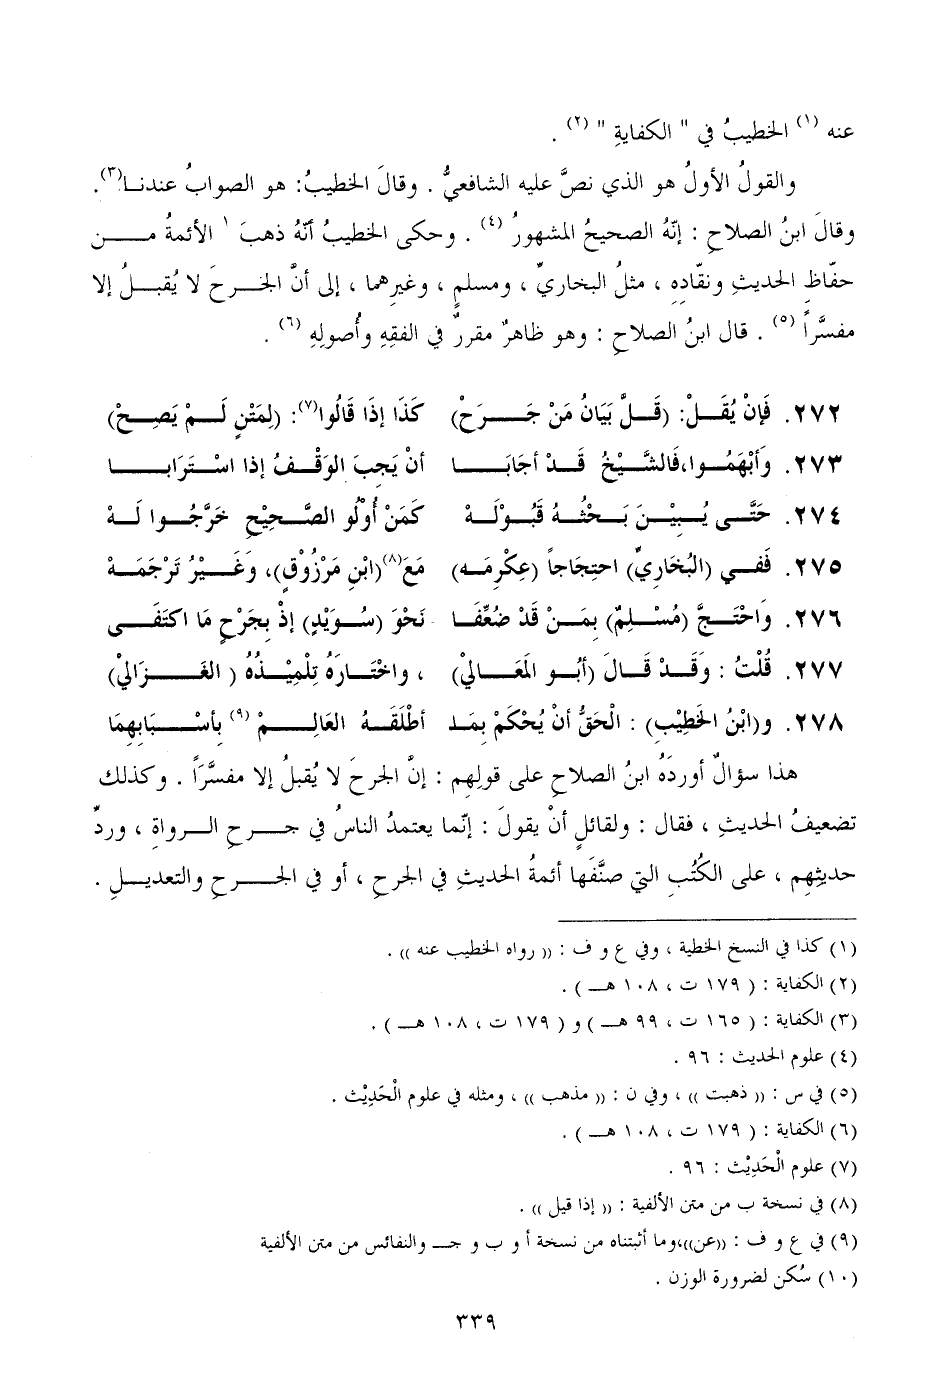 عنه (١) الخطيبُ في " الكفايةِ " (٢) .
والقولُ الأولُ هو الذي نصَّ عليه الشافعيُّ . وقالَ الخطيبُ: هو الصوابُ عندنـا(٣).
وقالَ ابنُ الصلاحِ : إنّهُ الصحيحُ المشهورُ (٤) . وحكى الخطيبُ أنّهُ ذهبَ ١ الأئمةُ مـــن
حفّاظِ الحديثِ ونقّادِهِ ، مثلُ البخاريِّ ، ومسلمٍ ، وغيرِهما ، إلى أنَّ الجَرحَ لا يُقبـلُ إلا
مفسَّراً (٥) . قال ابنُ الصلاحِ : وهو ظاهرٌ مقررٌ في الفقهِ وأُصولِهِ (٦) .
٢٧٢. فَإنْ يُقَـلْ: (قَـلَّ بَيَانُ مَنْ جَـرَحْ) كَذَا إذَا قَالُوا(٧): (لِمَتْنٍ لَـمْ يَصِـحْ)
٢٧٣. وَأبْهَمُـوا،فَالشَّـيْخُ قَـدْ أجَابَـا أنْ يَجِبَ الوَقْـفُ إذا اسْـتَرَابَـا
٢٧٤. حَتَّـى يُـبِيْـنَ بَـحْثُـهُ قَبُـوْلَـهْ كَمَنْ أُوْلُو الصَّـحِيْحِ خَرَّجُـوا لَـهْ
٢٧٥. فَفـي (البُخَارِيِّ) احتِجَاجاً (عِكْرِمَه) مَعَ(٨)(ابْنِ مَرْزُوْقٍ)، وَغَـيْرُ تَرْجَمَـهْ
٢٧٦. وَاحْتَـجَّ (مُسْـلِمٌ) بِمَـنْ قَدْ ضُعِّفَـا نَحْوَ (سُـوَيْدٍ) إذْ بِجَرْحٍ مَا اكتَفَـى
٢٧٧. قُلْتُ : وَقَـدْ قَـالَ (أبُـو المَعَـالي) ، واخْتَـارَهُ تِلْمِيْـذُهُ ( الغَـزالي)
٢٧٨. و(ابْنُ الخَطِيْبِ) : الْحَقُّ أنْ يُحْكَمْ بِمَـا أطْلَقَـهُ العَالِـمْ (٩) بِأسْـبَابِهِمَا
هذا سؤالٌ أوردَهُ ابنُ الصلاحِ على قولِهم : إنَّ الجرحَ لا يُقبلُ إلا مفسَّرَاً . وكذلك
تضعيفُ الحديثِ ، فقال : ولقائلٍ أنْ يقولَ : إنّما يعتمدُ الناسُ في جـرحِ الـرواةِ ، وردِّ
حديثِهِم ، على الكُتُبِ التي صنَّفَها أئمةُ الحديثِ في الجرحِ ، أو في الجـــرحِ والتعديـلِ .
(١) كذا في النسخ الخطية ، وفي ع و ف : (( رواه الخطيب عنه )) .
(٢) الكفاية : ( ١٧٩ ت ، ١٠٨ هـ ) .
(٣) الكفاية : ( ١٦٥ ت ، ٩٩ هـ ) و ( ١٧٩ ت ، ١٠٨ هـ ) .
(٤) علوم الحديث : ٩٦ .
(٥) في س : (( ذهبت )) ، وفي ن : (( مذهب )) ، ومثله في علوم الْحَدِيْث .
(٦) الكفاية : ( ١٧٩ ت ، ١٠٨ هـ ) .
(٧) علوم الْحَدِيْث : ٩٦ .
(٨) في نسخة ب من متن الألفية : (( إذا قيل )) .
(٩) في ع و ف : ((عن))،وما أثبتناه من نسخة أ و ب و جـ والنفائس من متن الألفية
(١٠) سُكن لضرورة الوزن .
٣٣٩